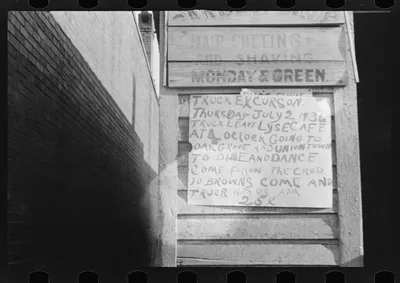 HAIR CUTTING
AND SHAVING
MONDAY & GREEN.
TRUCK EXCURSON.
THURSDAY JULY 2 1936
TRUCK LEAVE LYSE CAFE
AT 4 OCLORK GOING TO
OAK GROVE AND UNION TOWN
TO DINE AND DANCE
COME FOLLOW THE CROD
TO BROWNS COME AND
TRUCK WITH US
25¢